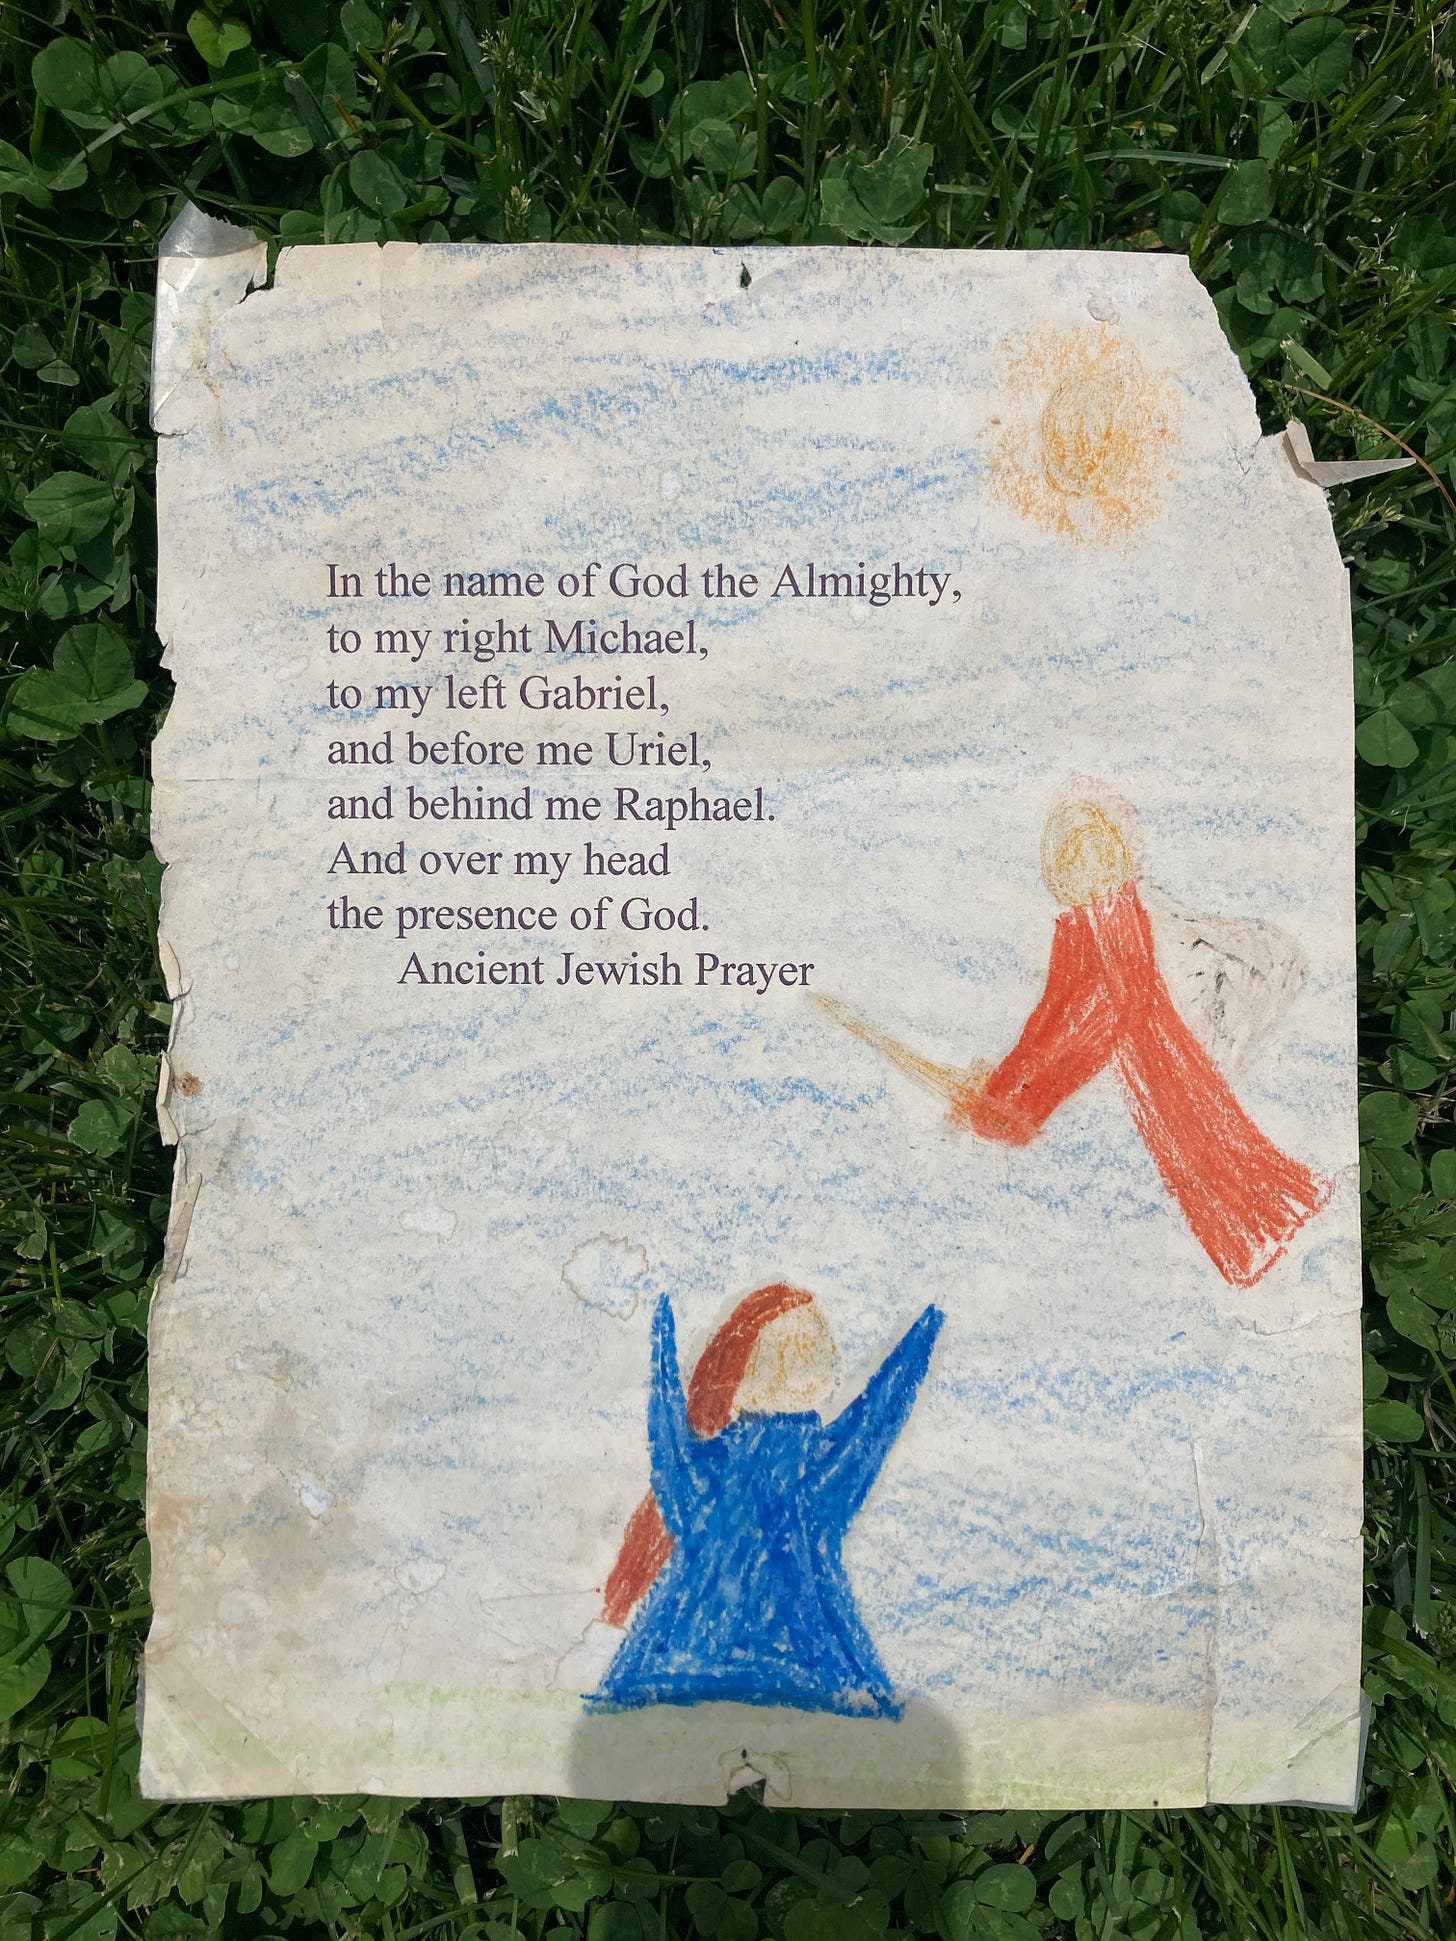 In the name of God the Almighty,
to my right Michael,
to my left Gabriel,
and before me Uriel,
and behind me Raphael.
And over my head
the presence of God.
Ancient Jewish Prayer